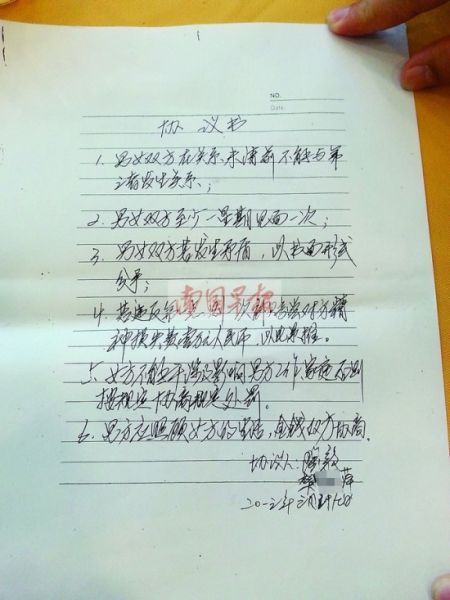 NO.
Date
协议书
1. 男女双方在关系未清前不能与第
三者发生关系;
2. 男女双方至少一星期见面一次;
3. 男女双方若发生矛盾,以书面形式
分手;
4. 若违反 一次 对方精
神损失费 万元人民币,以此类推。
南国早报
女方不能干涉影响男方工作家庭否则
按规定协商规定处罚。
男方应照顾女方的生活,金钱双方协商.
协议人:
萍